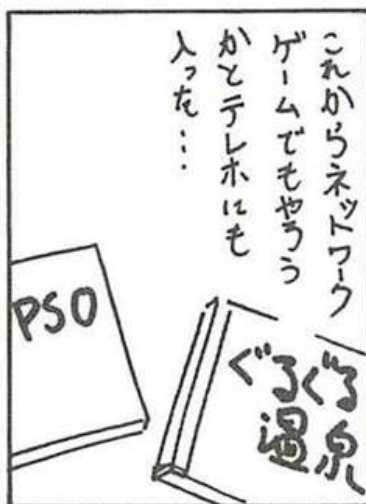 これからネットワーク
ゲームでもやろう
かとテレホにも
入った…
PSO
ぐるぐる
温泉